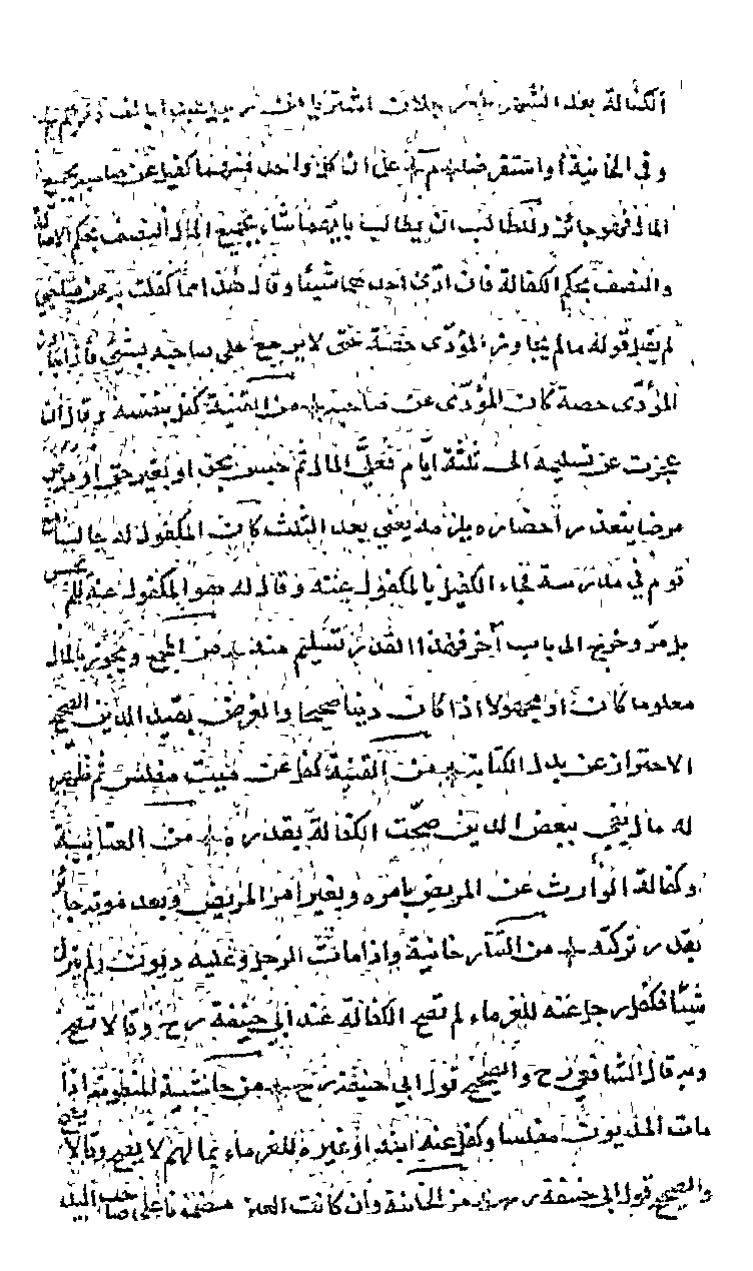 الكفالة بعد الشهر رجلان اشتريا من
وفي الخانية أو استقرضا على ان كل واحد منهما كفيل عن صاحبه بجميع
المال فهو جائز وللطالب ان يطالب بايهما شاء بجميع المال النصف بحكم الاصالة
والنصف بحكم الكفالة فان ادى احدهما شيئا وقال هذا مما كفلت به عن صاحبي
لم يقبل قوله ما لم يجاوز المؤدى حصته حتى لا يرجع على صاحبه بشئ فاذا
المؤدى حصة كان المؤدى عن صاحبه من القنية كفل بنفسه وقال ان
عجزت عن تسليمه الى ثلثة ايام فعليّ المال ثم حبس بحق او بغير حق او مرض
مرضا يتعذر احضاره يلزمه يعني بعد الثلث كان المكفول له جالسا مع
قوم في مدرسة فجاء الكفيل بالمكفول عنه وقال له هو المكفول عنه فلم يجلس
بل مرّ وخرج الى باب آخر فهذا القدر تسليم منه من المجمع ويجوز بالمال
معلوما كان او مجهولا اذا كان دينا صحيحا والغرض بقيد الدين الصحيح
الاحتراز عن بدل الكتابة من القنية كفل عن ميت مفلس ثم ظهر
له مال يفي ببعض الدين صحّت الكفالة بقدره من العتابية
وكفالة الوارث عن المريض بامره وبغير امر المريض وبعد موته جائز
بقدر تركته من التتارخانية واذا مات الرجل وعليه ديون ولم يترك
شيئا فكفل رجل عنه للغرماء لم تصح الكفالة عند ابي حنيفة رح وقالا تصح
وبه قال الشافعي رح والصحيح قول ابي حنيفة رح من حاشية المنظومة اذا
مات المديون مفلسا وكفل عنه ابنه او غيره للغرماء بما لهم لا يصح وقالا
والصحيح قول ابي حنيفة من الخانية وان كانت العين مضمونة على صاحب اليد